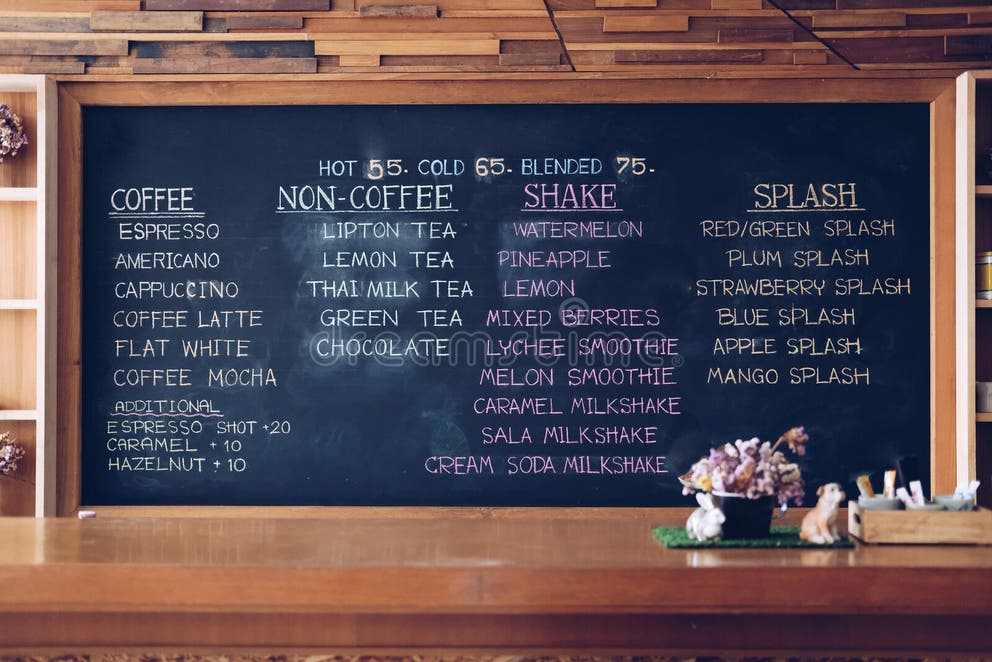 HOT 55. COLD 65. BLENDED 75.
COFFEE
ESPRESSO
AMERICANO
CAPPUCCINO
COFFEE LATTE
FLAT WHITE
COFFEE MOCHA
ADDITIONAL
ESPRESSO SHOT +20
CARAMEL +10
HAZELNUT +10
NON-COFFEE
LIPTON TEA
LEMON TEA
THAI MILK TEA
GREEN TEA
CHOCOLATE
SHAKE
WATERMELON
PINEAPPLE
LEMON
MIXED BERRIES
LYCHEE SMOOTHIE
MELON SMOOTHIE
CARAMEL MILKSHAKE
SALA MILKSHAKE
CREAM SODA MILKSHAKE
SPLASH
RED/GREEN SPLASH
PLUM SPLASH
STRAWBERRY SPLASH
BLUE SPLASH
APPLE SPLASH
MANGO SPLASH
dreamstime